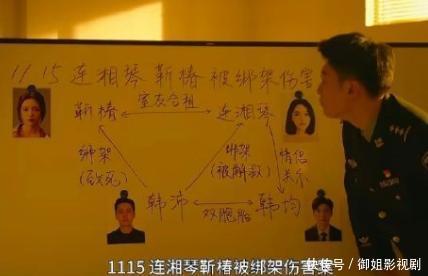 1115连湘琴靳椿被绑架伤害
靳椿 室友合租 连湘琴
绑架 绑架 情侣
(致死) (被解救) 关系
韩沛 双胞胎 韩均
1115 连湘琴靳椿被绑架伤害案
快传号/御姐影视剧